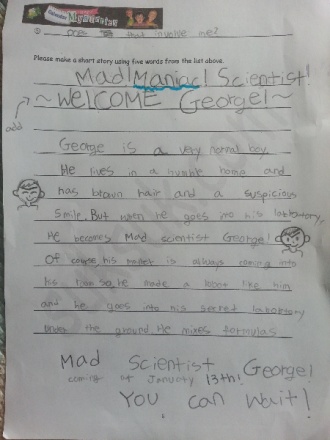 one that involve me?
Please make a short story using five words from the list above.
Mad! Maniac! Scientist!
~WELCOME George!~
add
George is a very normal boy.
He lives in a humble home and
has brown hair and a suspicious
smile. But when he goes into his labortory,
He becomes Mad scientist George!
Of course, his mother is always coming into
his room so he made a robot like him
and he goes into his secret laboratory
under the ground. He mixes formulas
Mad Scientist George!
coming at January 13th!
You can wait!